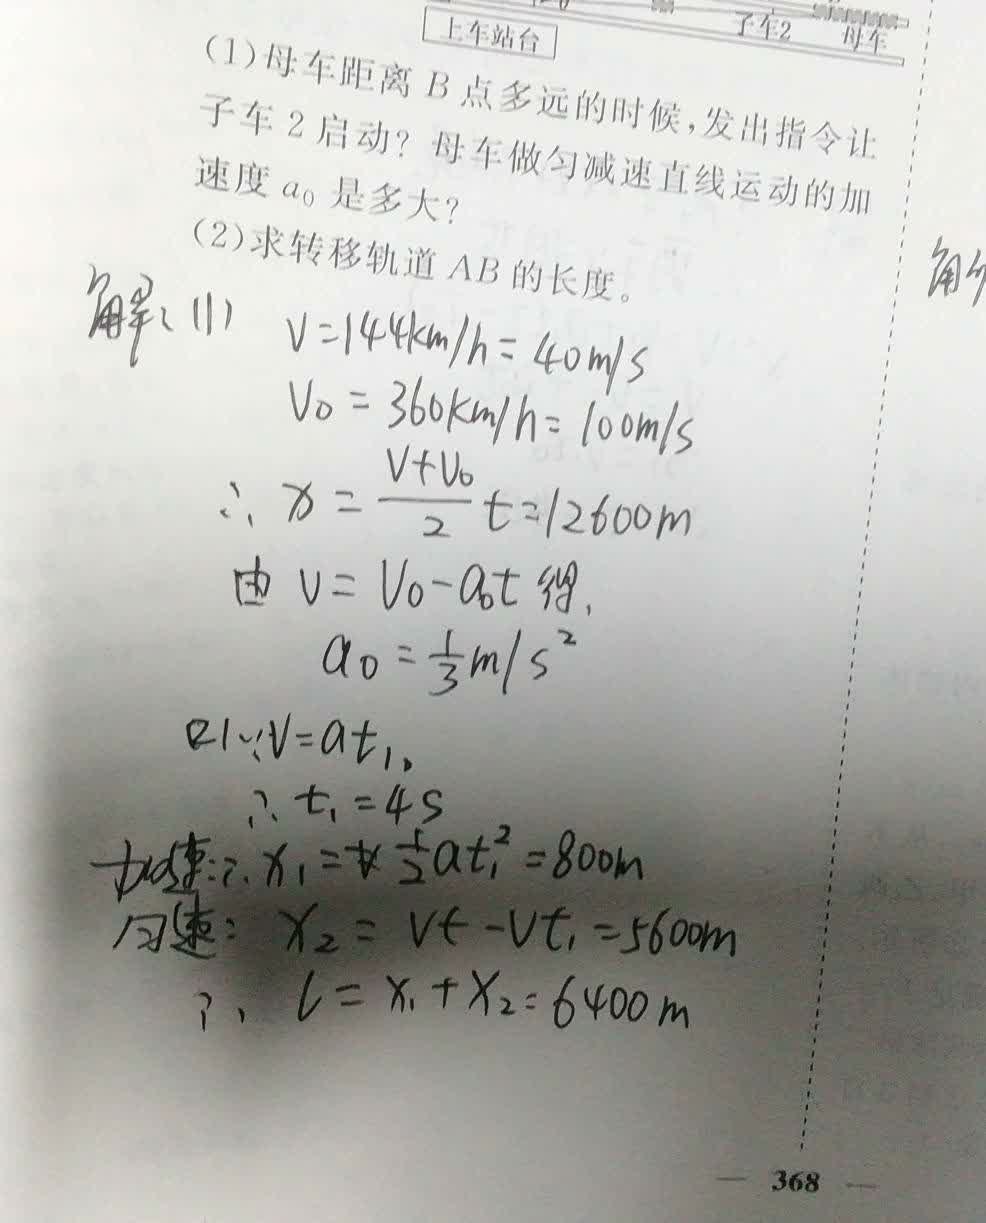 子车2 母车
上车站台
(1)母车距离B点多远的时候,发出指令让
子车2启动?母车做匀减速直线运动的加
速度a₀是多大?
(2)求转移轨道AB的长度。
解:(1) V=144km/h=40m/s
V₀=360km/h=100m/s
∴x=(V+V₀)/2 t=12600m
由V=V₀-a₀t得,
a₀=1/3m/s²
(2)∵V=at₁,
∴t₁=4s
加速:∴x₁=1/2at₁²=800m
匀速:x₂=Vt-Vt₁=5600m
∴L=x₁+x₂=6400m
368